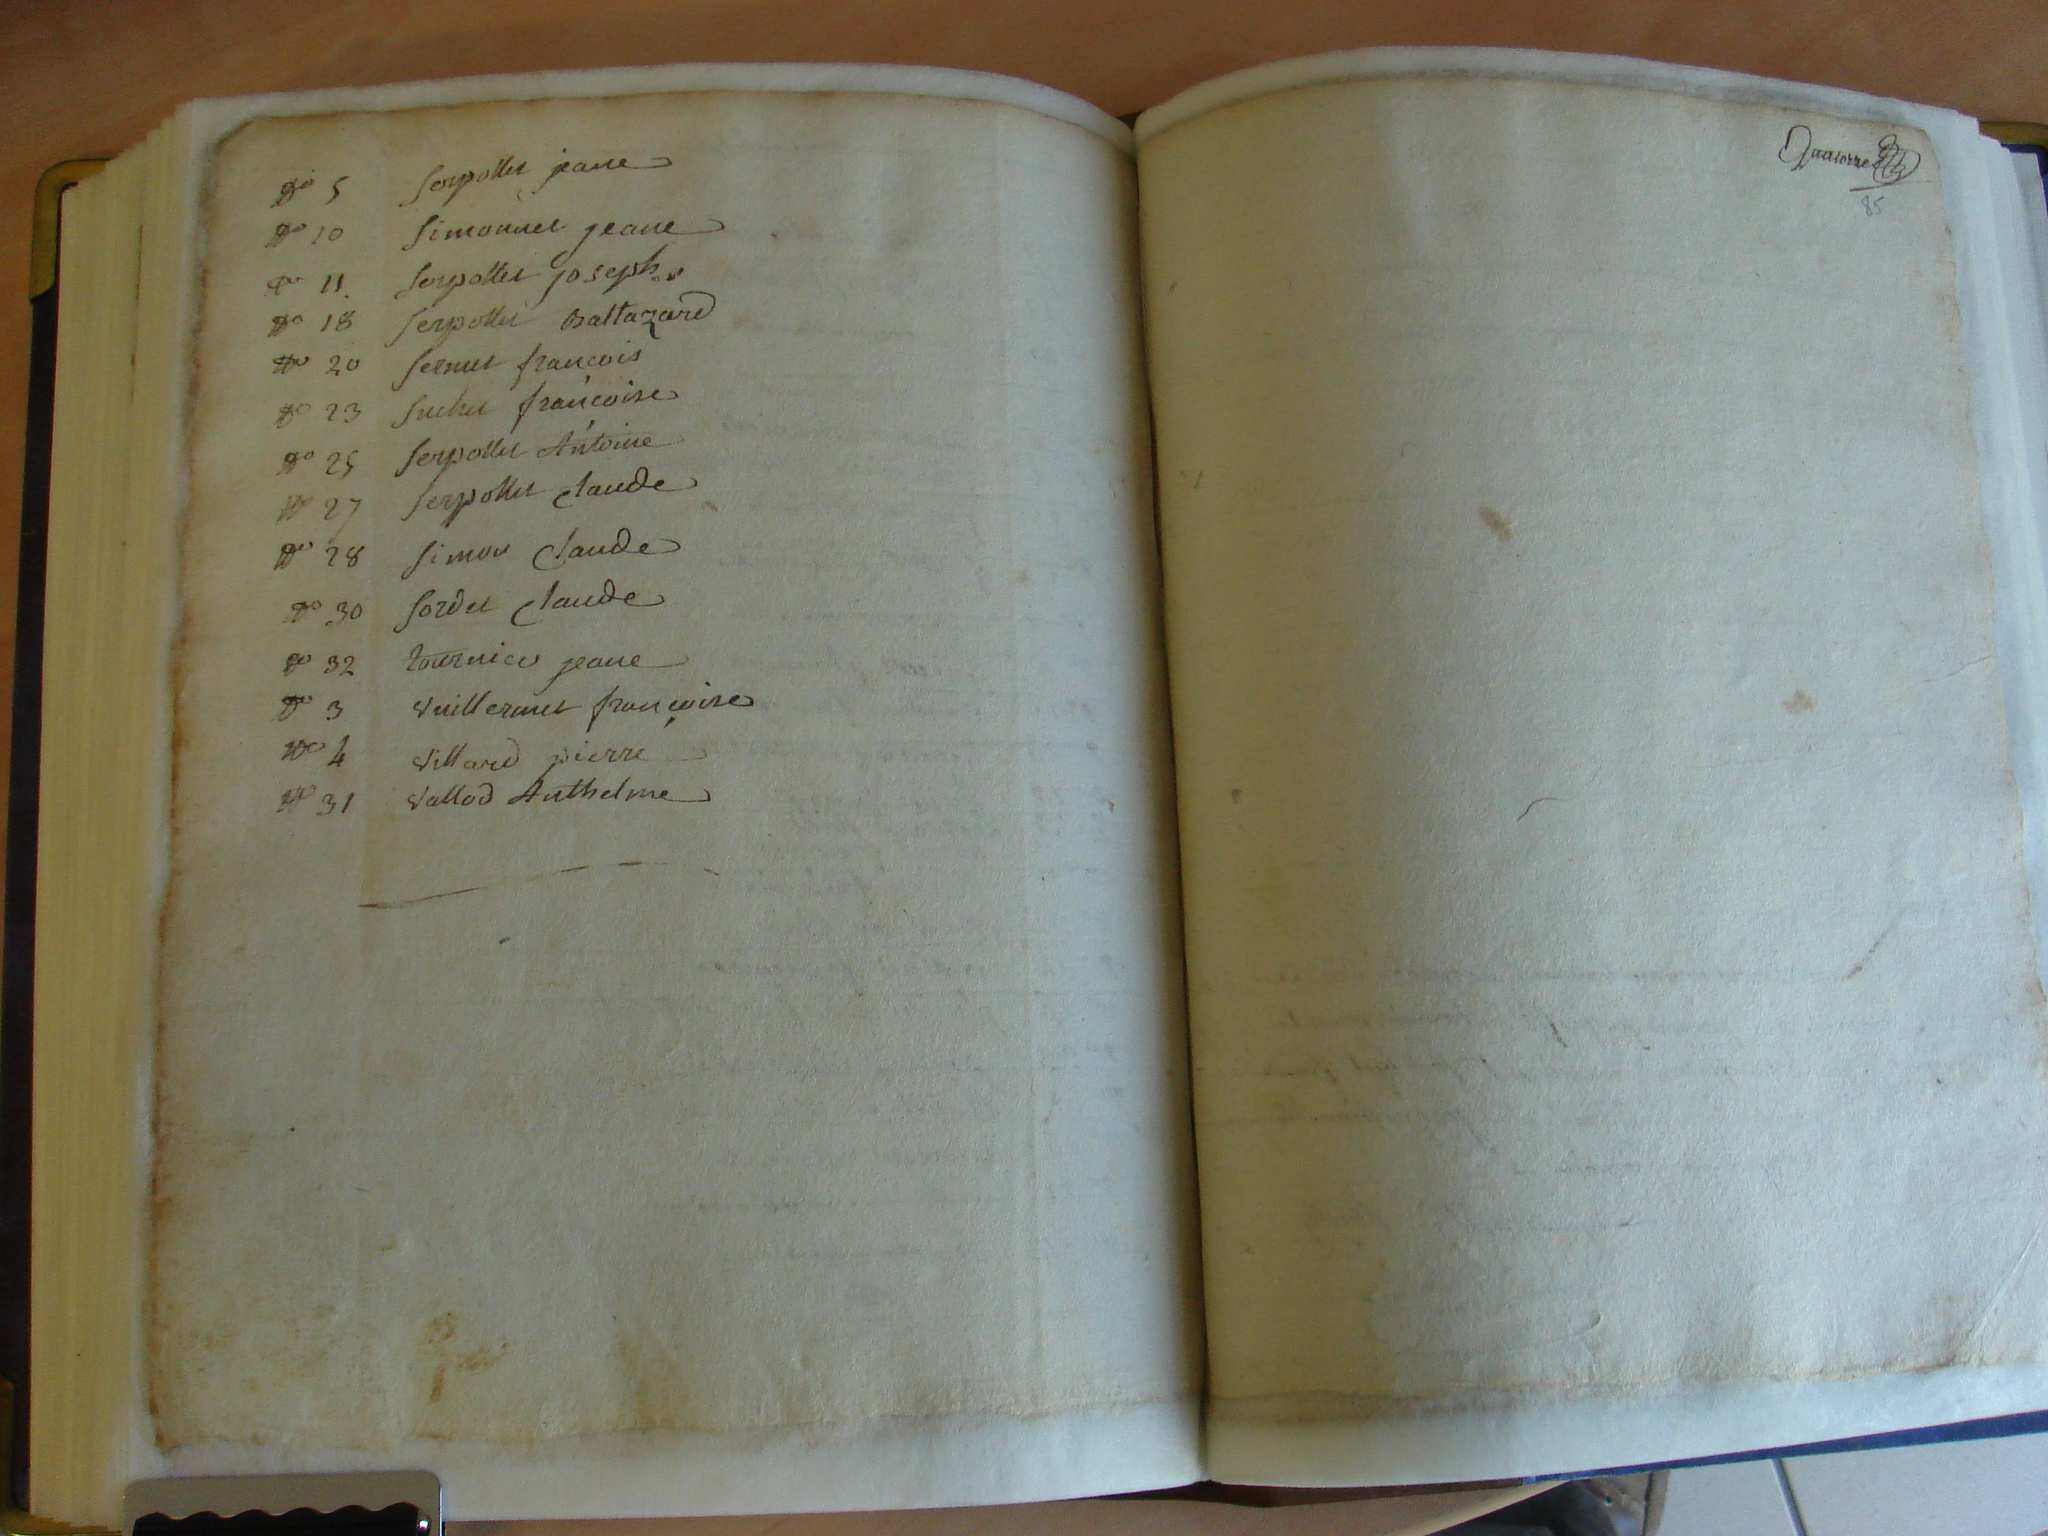 No 5 Serpollet jeane
No 10 Simonnet jeane
No 11 Serpollet joseph
No 18 Serpollet Baltazard
No 20 Sernet francois
No 23 Suchet francoise
No 25 Serpollet Antoine
No 27 Serpollet Claude
No 28 Simon Claude
No 30 Sordet Claude
No 32 tournier jeane
No 3 Vuillermet françoise
No 4 Villard pierre
No 31 Vallod Anthelme
85